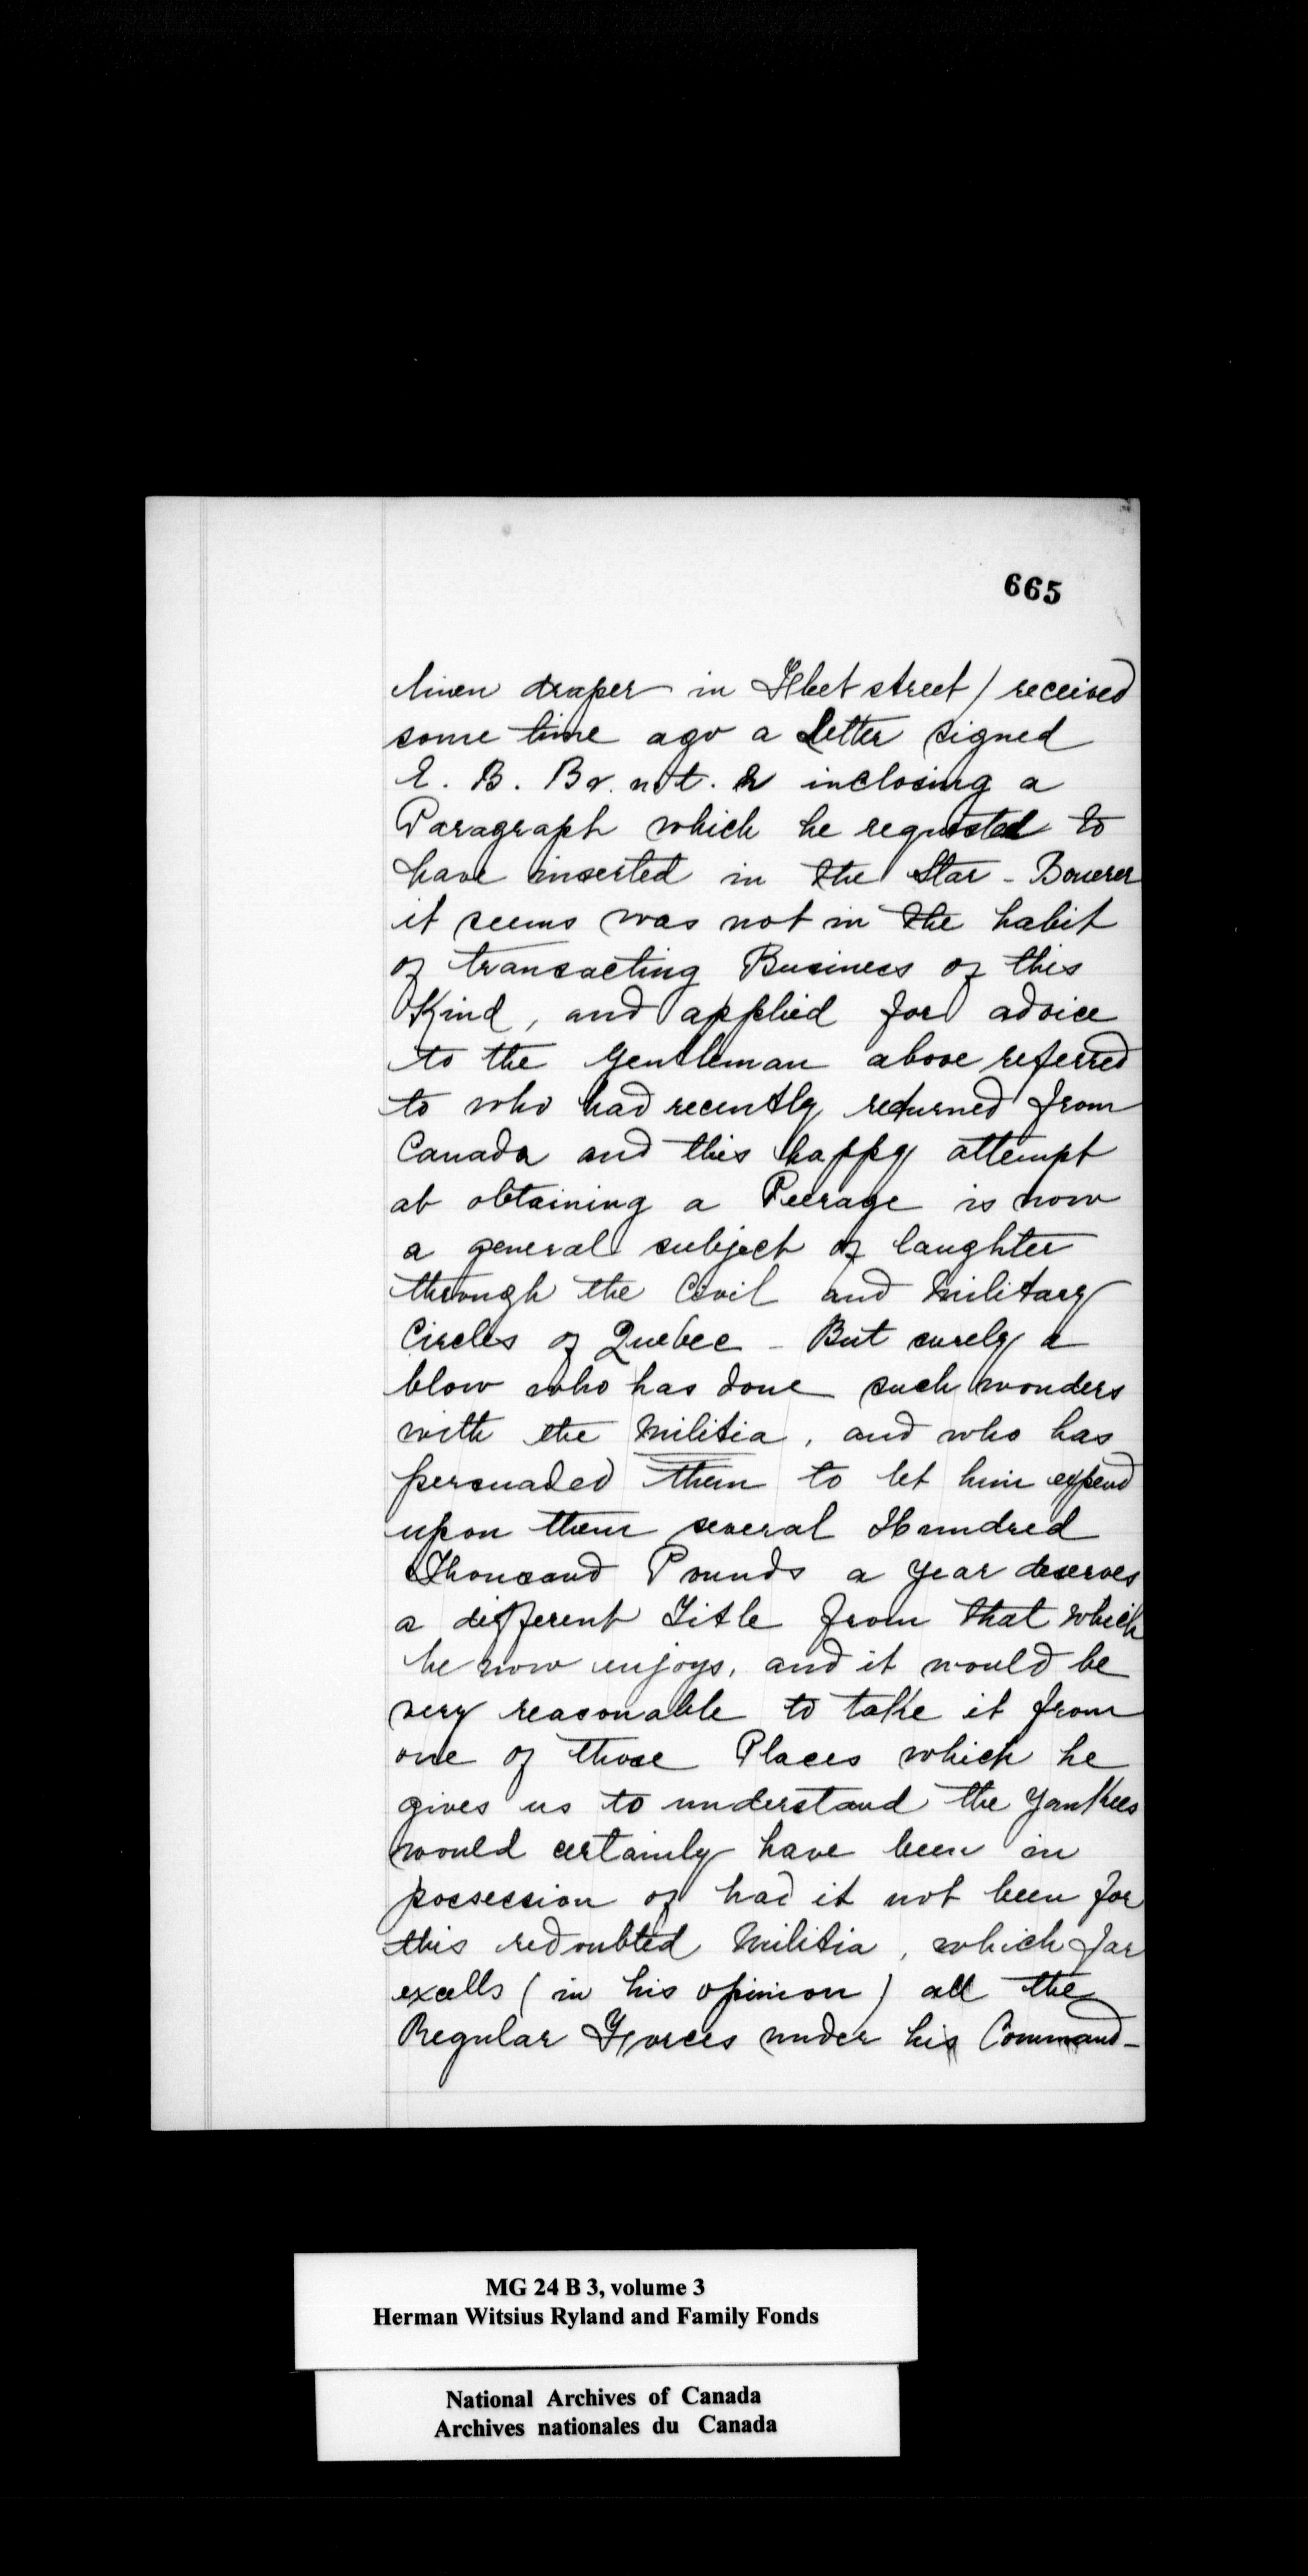 665
linen draper in Fleet street) received
some time ago a Letter signed
E. B. Br. nt. & inclosing a
Paragraph which he requested to
have inserted in the Star - Bowerer
it seems was not in the habit
of transacting Business of this
Kind, and applied for advice
to the Gentleman above referred
to who had recently returned from
Canada and this happy attempt
at obtaining a Peerage is now
a general subject of laughter
through the Civil and Military
Circles of Quebec - But surely a
blow who has done such wonders
with the Militia, and who has
persuaded them to let him expend
upon them several Hundred
Thousand Pounds a year deserves
a different Title from that which
he now enjoys, and it would be
very reasonable to take it from
one of those Places which he
gives us to understand the Yankees
would certainly have been in
possession of had it not been for
this redoubted Militia, which far
excells (in his opinion) all the
Regular Forces under his Command -
MG 24 B 3, volume 3
Herman Witsius Ryland and Family Fonds
National Archives of Canada
Archives nationales du Canada